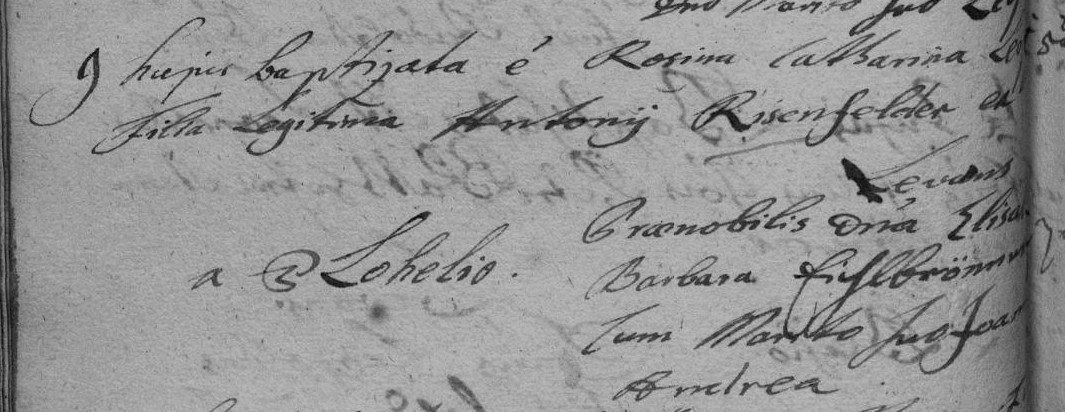 Dno Marito suo
9 hujus baptizata è Rosina Catharina
filia Legitima Antonij Risenfelder et
Levans
Prænobilis Dna Elisa
a P Lohelio.
Barbara
Cum Marito suo Joan
Andrea